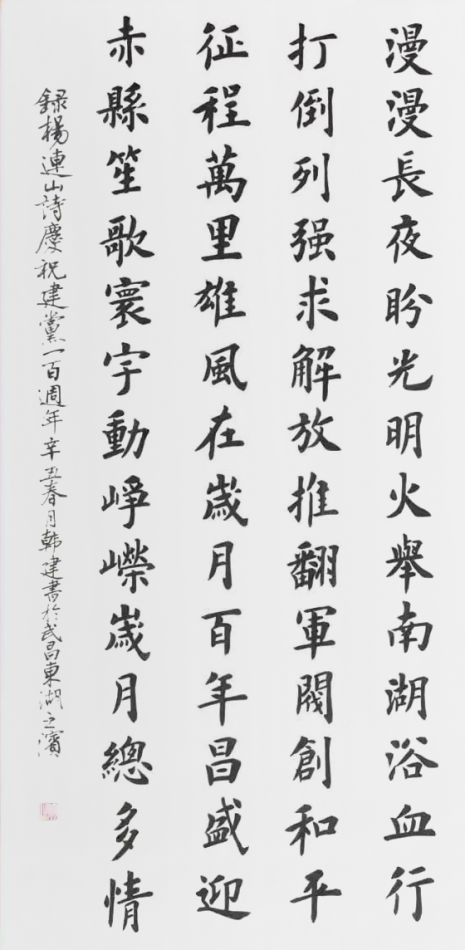 漫漫長夜盼光明火舉南湖浴血行
打倒列强求解放推翻軍閥創和平
征程萬里雄風在歲月百年昌盛迎
赤縣笙歌寰宇動崢嶸歲月總多情
録楊連山詩慶祝建黨一百週年辛丑春月韩建書於武昌東湖之濱